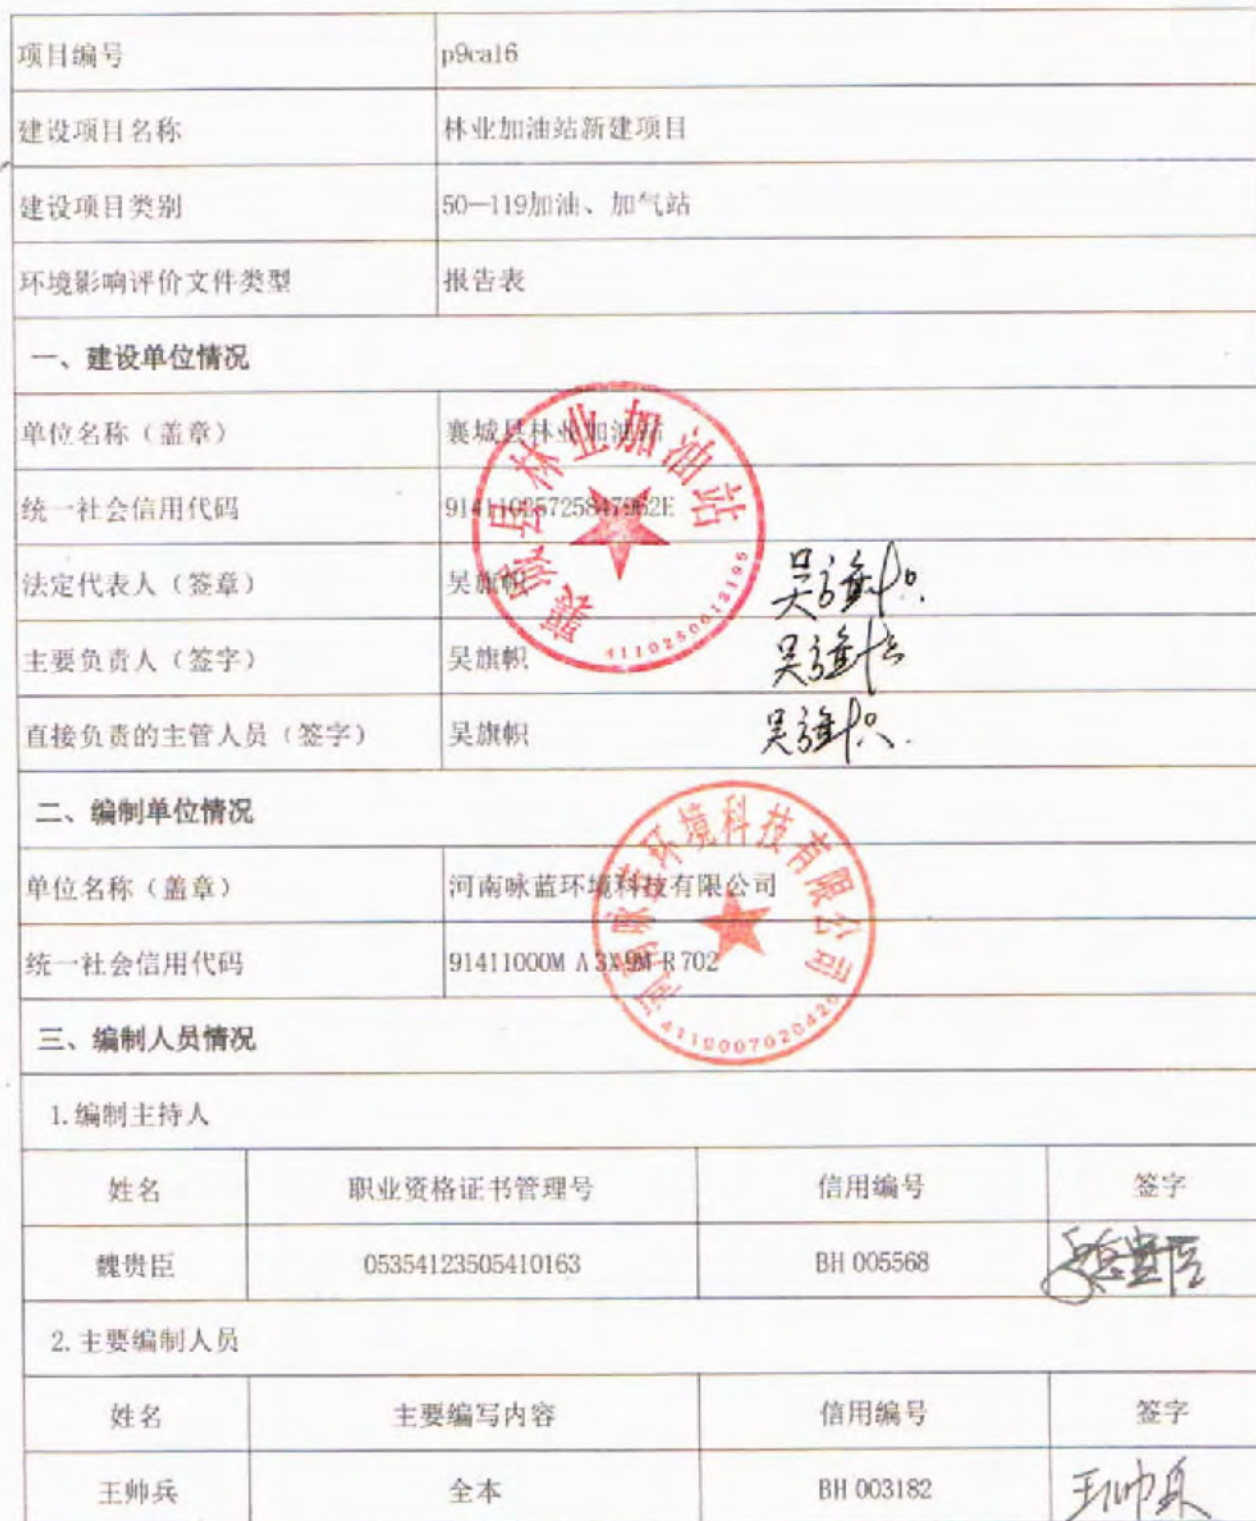 项目编号 p9ca16
建设项目名称 林业加油站新建项目
建设项目类别 50—119加油、加气站
环境影响评价文件类型 报告表
一、建设单位情况
单位名称（盖章） 襄城县林业加油站
统一社会信用代码 91411025725847962E
法定代表人（签章） 吴旗帜 吴旗帜
主要负责人（签字） 吴旗帜 吴旗帜
直接负责的主管人员（签字） 吴旗帜 吴旗帜
襄城县林业加油站
4110250012195
二、编制单位情况
单位名称（盖章） 河南咏蓝环境科技有限公司
统一社会信用代码 91411000MA3X9MR702
河南咏蓝环境科技有限公司
4110007020420
三、编制人员情况
1.编制主持人
姓名 职业资格证书管理号 信用编号 签字
魏贵臣 05354123505410163 BH 005568 魏贵臣
2.主要编制人员
姓名 主要编写内容 信用编号 签字
王帅兵 全本 BH 003182 王帅兵